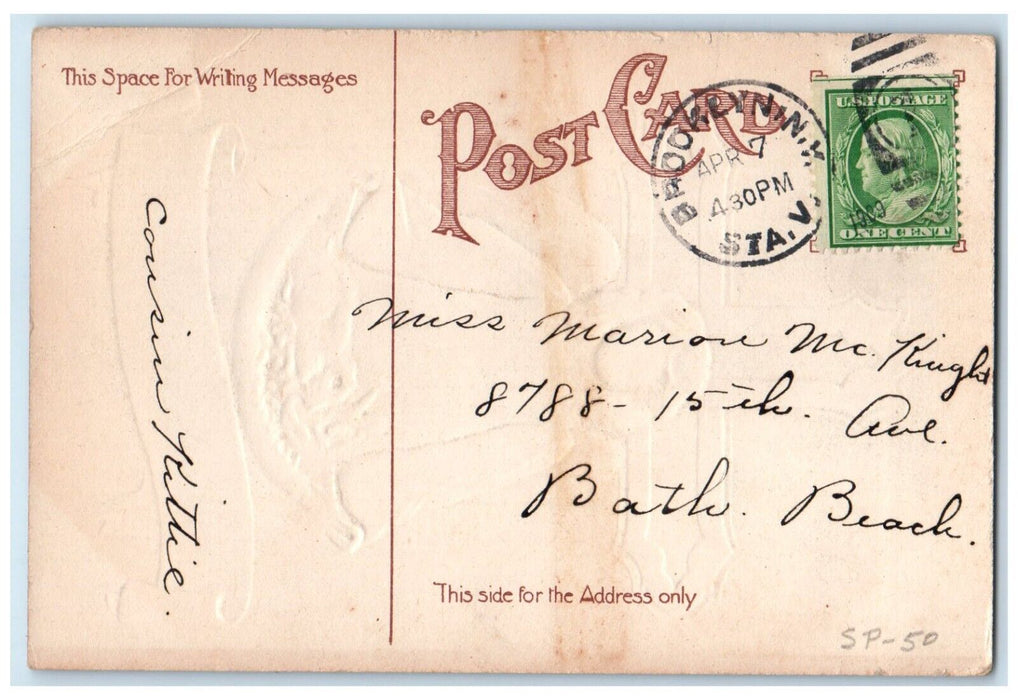 This Space For Writing Messages
POST CARD
BROOKLYN, N.Y.
APR 7
430PM
STA. V.
U.S. POSTAGE
1909
ONE CENT
Cousin Kittie.
Miss Marion Mc. Knight
8788 - 15th. Ave.
Bath. Beach.
This side for the Address only
SP-50